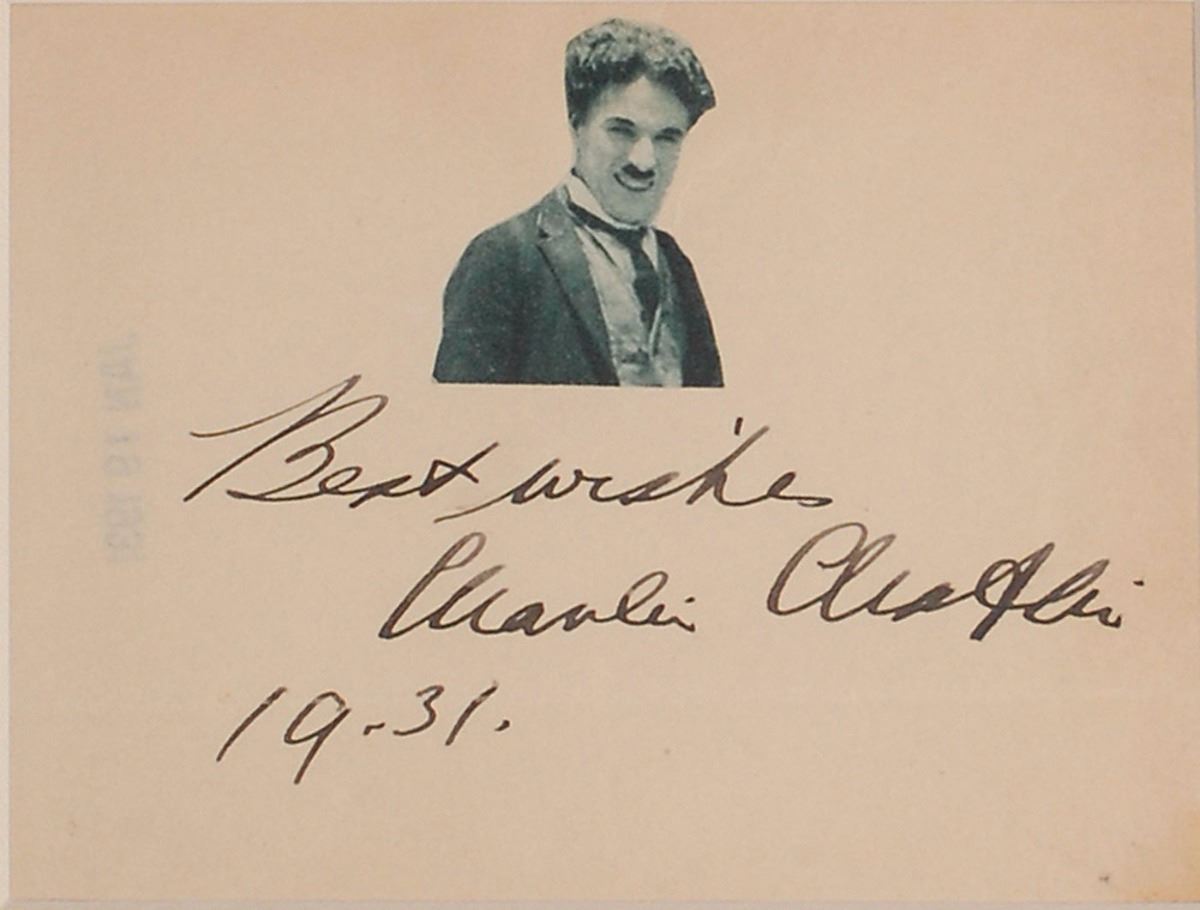 Best wishes
Charlie Chaplin
19-31.